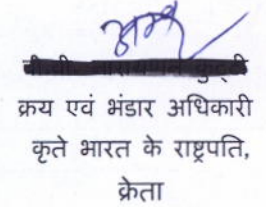 क्रय एवं भंडार अधिकारी
कृते भारत के राष्ट्रपति,
क्रेता